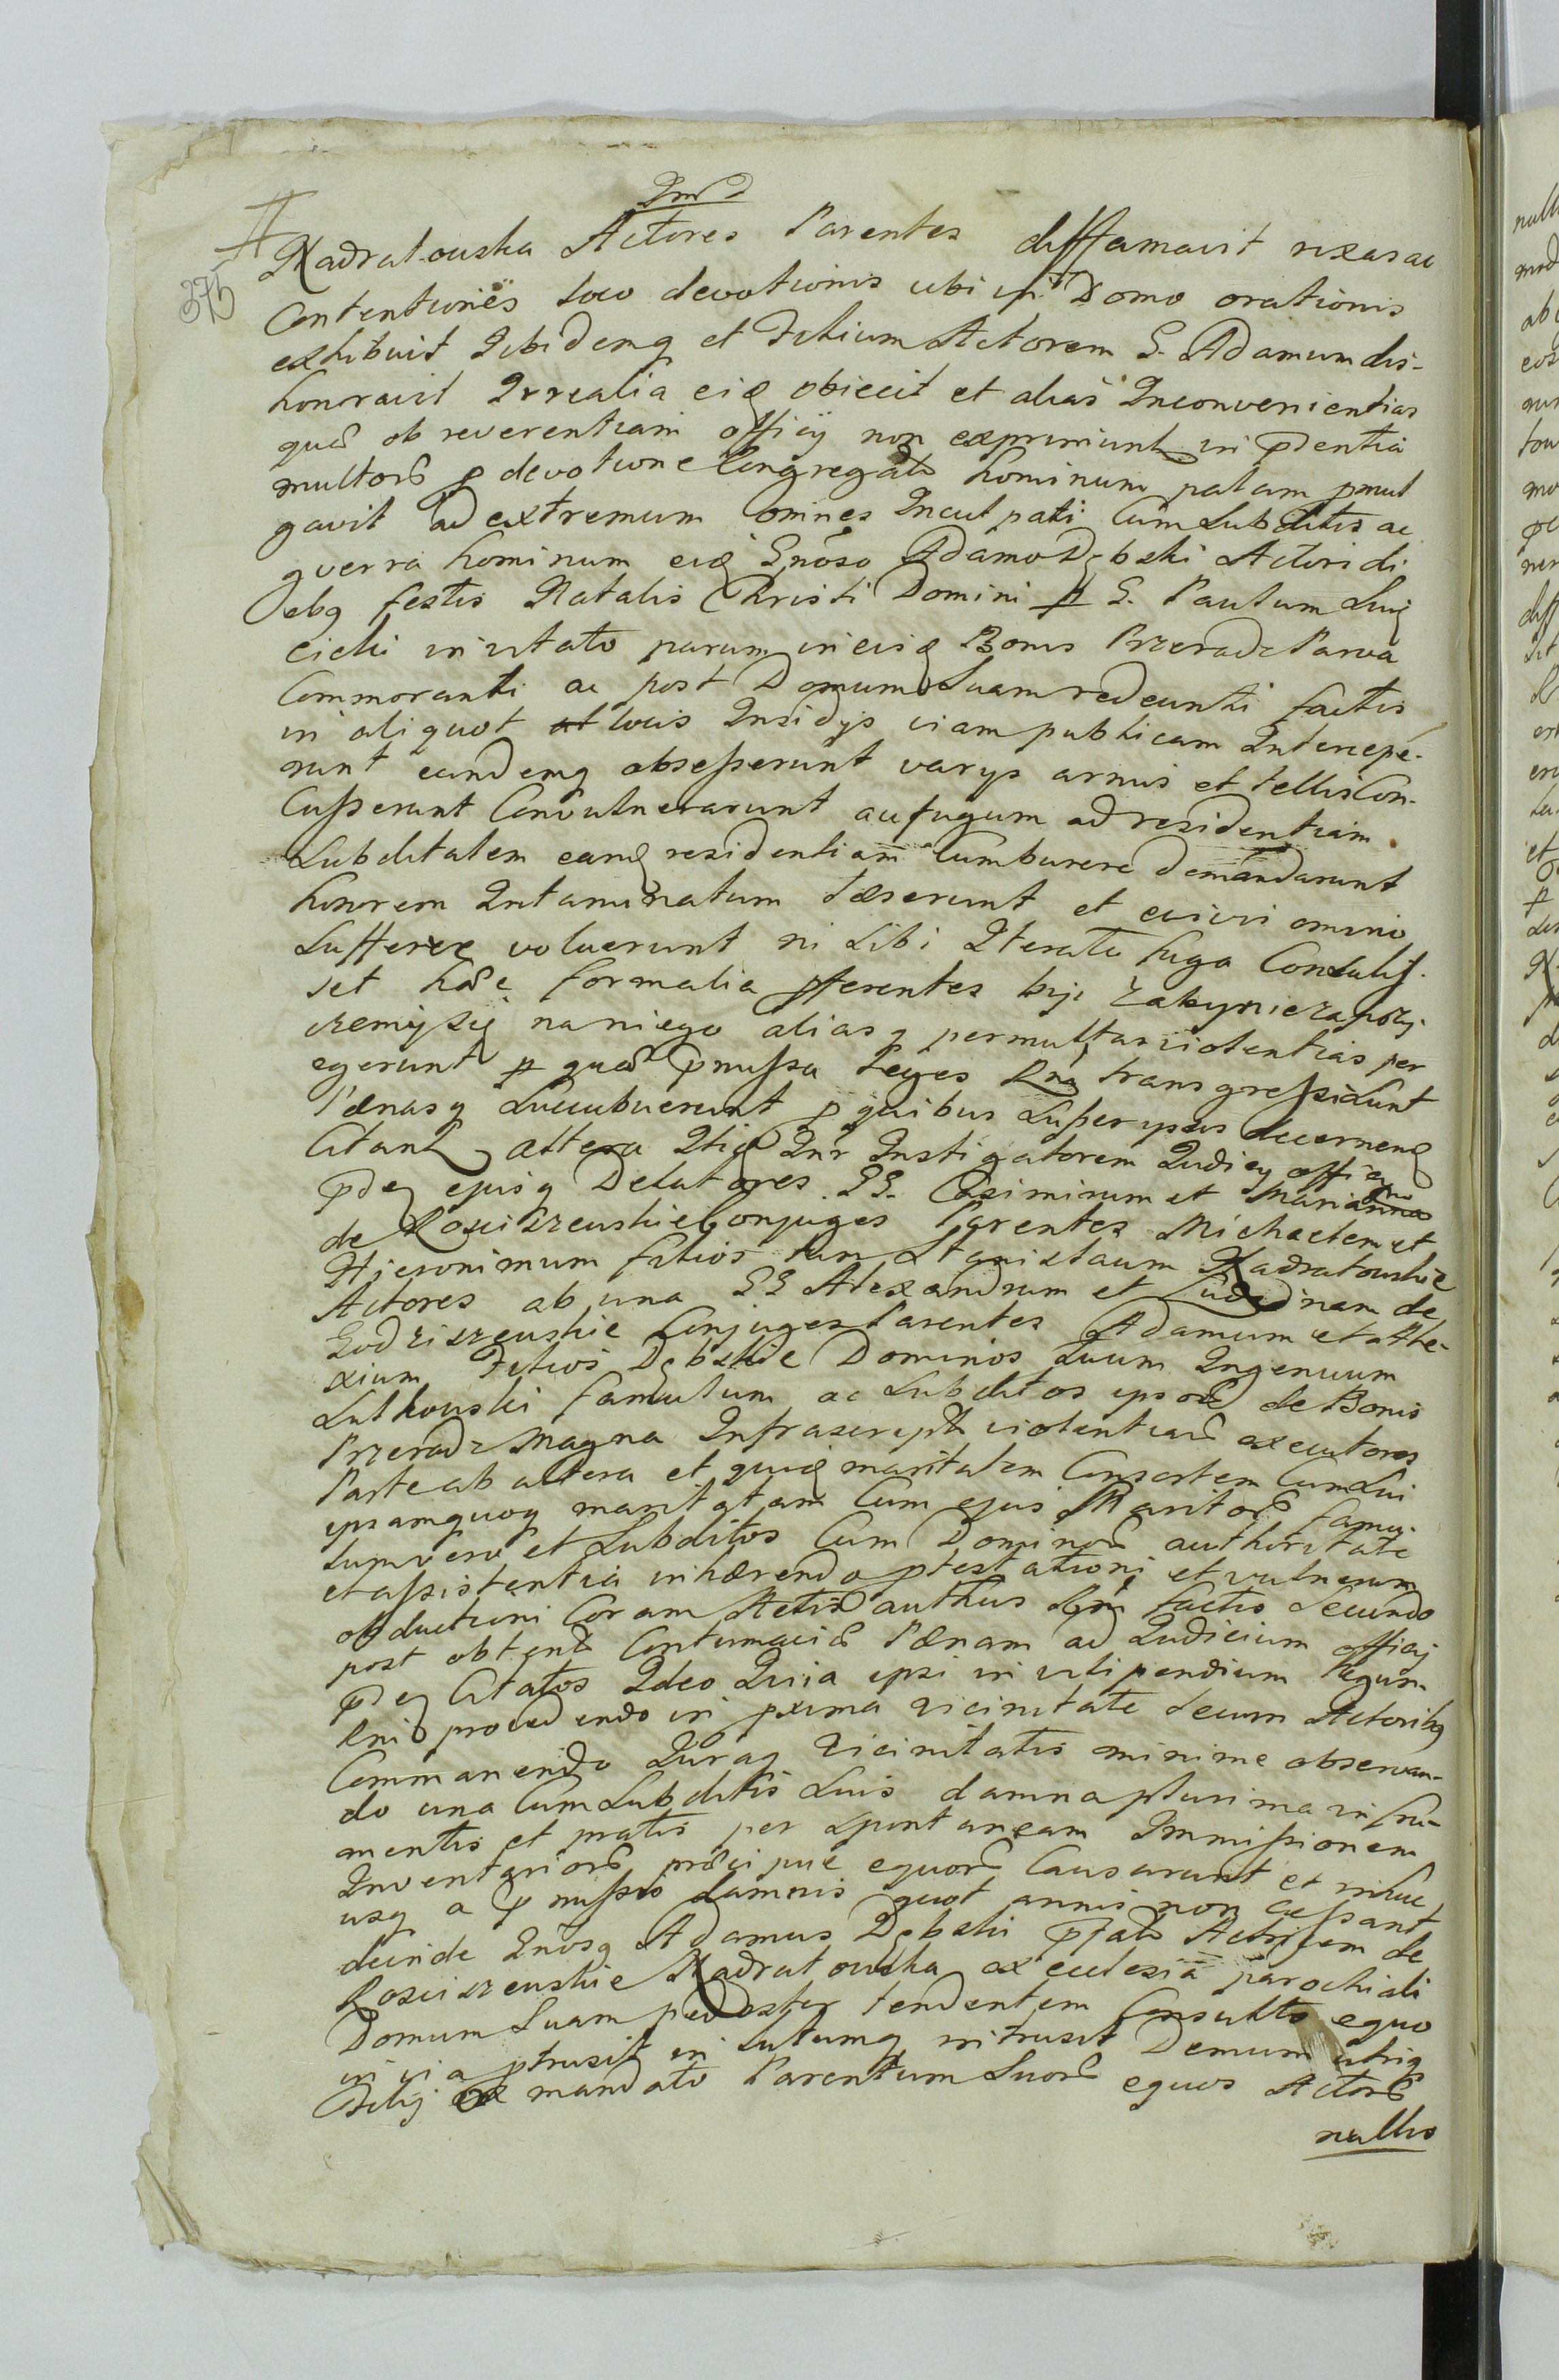 375
Kadratouska Actores Parentes diffamavit rixas ac
Contentiones loco devotionis ubi in Domo orationis
exhibuit Ibidemq et Filium Actorem G. Adamum dis-
honoravit Irrealia eiq obiecit et alias Inconvenientias
quas ob reverentiam officij non exprimunt in pdentia
multorū p devotione Congregato hominum palam pmul
gavit ad extremum omnes Inculpati Cum Subditis ac
gverra hominum eiq Gnoso Adamo Dębski Actori di
ebq festis Natalis Christi Domini p G. Paulum
cicki invitato parum in eisq Bonis Przeradz Parva
Commoranti ac post Domum Suam redeunti factis
in aliquot locis Insidijs viam publicam Intercepe-
runt eundemq obsesserunt varijs armis et tellis Con-
Cusserunt Convulnerarunt aufugum ad residentiam
Subditalem eamq residentiam Cumburere demandarunt
honorem Intaminatum læserunt et evivi omnino
Sufferre voluerunt ni Sibi Iterato fuga Consuluis-
set hæc formalia pferentes
na niego aliasq permultas violentias per
egerunt p quæ pmissa Leges Rni transgressi Sunt
Pænasq Succubuerunt p quibus Super ipsis decernenq
Citant altera Itiq Inr Instigatorem Iudicij officij
pdeq ejusq Delatores GG. Casimirum et Mariannā
de Rosciszeuskie Conjuges Parentes Michaelem et
Hjeronimum filios tum Stanislaum Kadratouskie
Actores ab una GG Alexandrum et de
Godziszeuskie Conjuges Parentes Adamum et Ale-
xium Filios Dębskie Dominos Suum Ingenuum
Sutkouski famulum ac Subditos ipsorū de Bonis
Przeradz Magna Infrascript violentiarū executores
Parte ab altera et quidē maritalem Consortem Cum Sui
ipsamquoq maritatam Cum ejus Maritorū famu-
lum vero et Subditos Cum Dominorū authoritate
et assistentia inhærendo ptestationi et vulnerum
obductioni Coram Actis authus Rni factis Secundo
post obtentā Contumaciæ Pænam ad Iudicium officij
pdeq Citatos Ideo Quia ipsi in vilipendium Legum
Rni procedendo in pxima vicinitate Secum Actoribq
Commanendo Iuraq vicinitatis minime observan-
do una Cum Subditis Suis damna plurima in fru-
mentis et pratis per Spontaneam Immissionem
Inventariorū præcipue equorū Causarunt et
usq a pmissis damnis quot annis non Cessant
deinde Gnosq Adamus Dębski pfatā Actricem de
Rosciszeuskie Kadratouska ex ecclesia parochiali
Domum Suam pedester tendentem Consulto equo
in via ptrusit in lutumq intrusit Demum utrig
Filij ex mandato Parentum Suorū equos Actorū
nullis